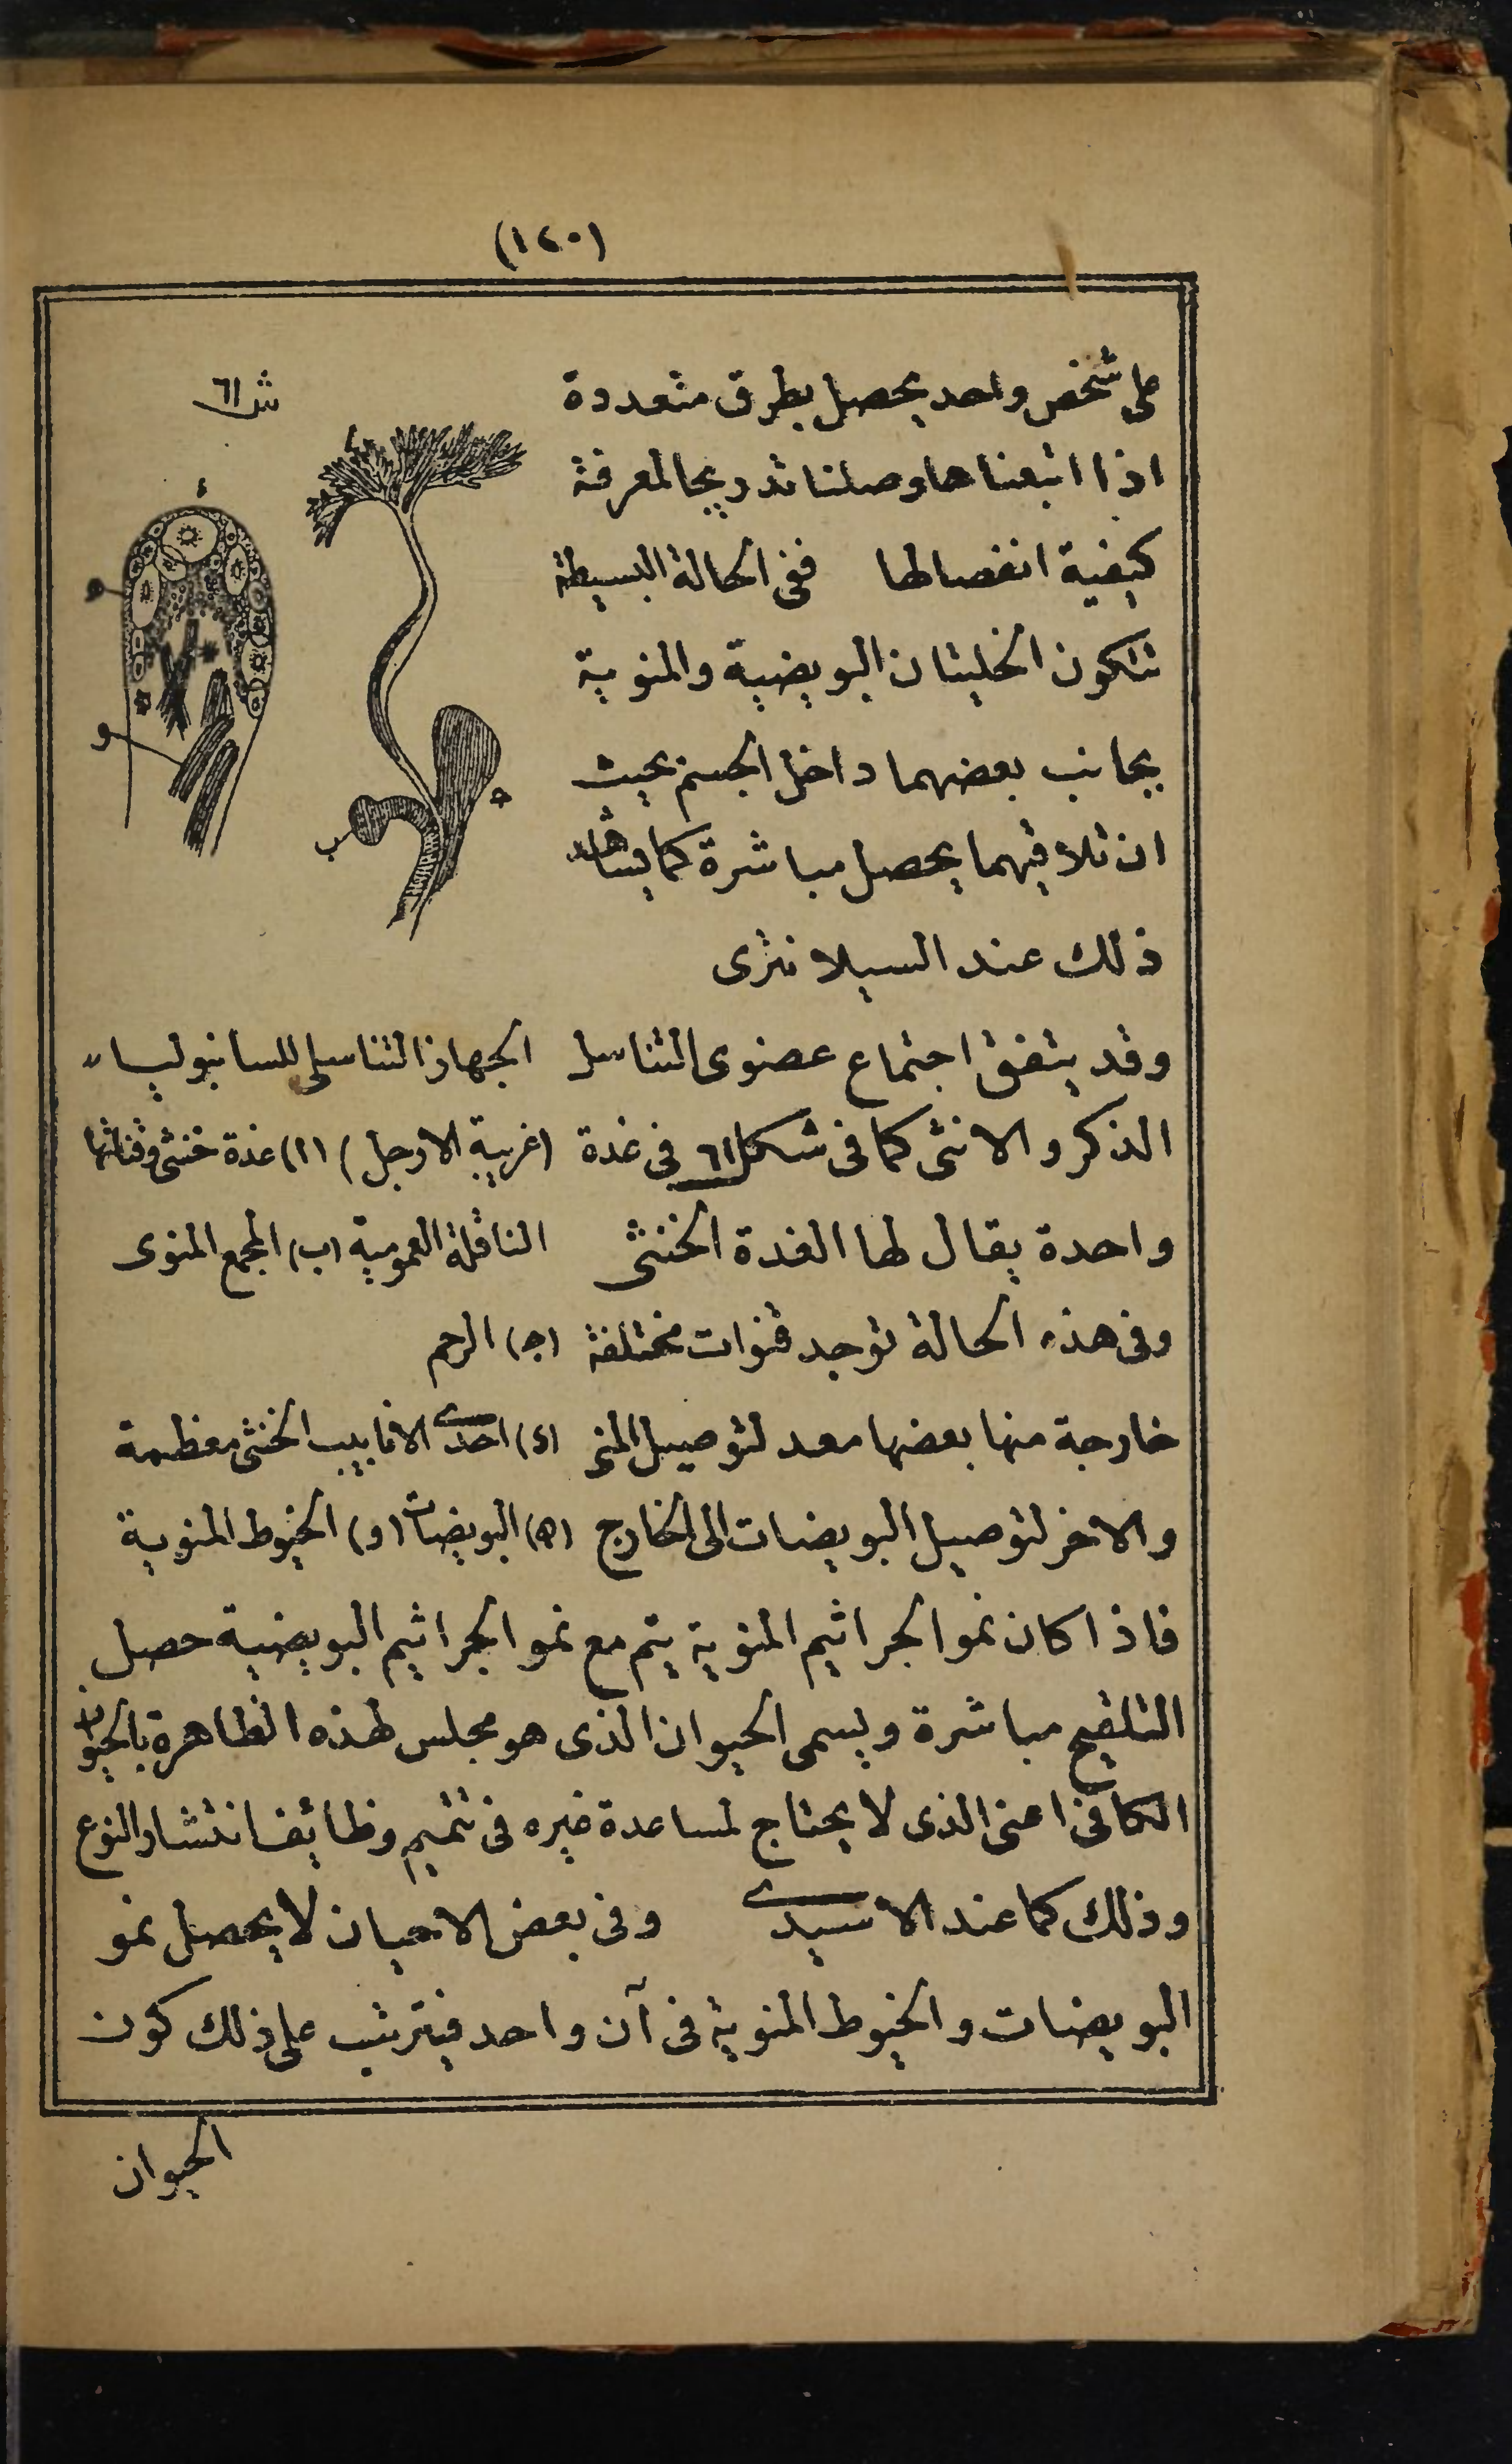 (١٢٠)
على شخص واحد يحصل بطرق متعددة
اذا اتبعناها وصلنا تدريجا لمعرفة
كيفية انفصالها ففى الحالة البسيطة
تتكون الخليتان البويضية والمنوية
بجانب بعضهما داخل الجسم بحيث
ان تلاقيهما يحصل مباشرة كما يشاهد
ذلك عند السيلانترى
وقد يتفق اجتماع عضوى التناسل
الذكر والانثى كما فى شكل ٦١ فى غدة
واحدة يقال لها الغدة الخنثى
وفى هذه الحالة توجد قنوات مختلفة
خارجة منها بعضها معد لتوصيل المنى
والاخر لتوصيل البويضات الى الخارج
ش ٦١
ا
ء
ه
و
ب
ج
الجهاز التناسلى للسانبوليا
(غريبة الارجل) (ا) غدة خنثى وقناتها
الناقلة العمومية (ب) المجمع المنوى
(ج) الرحم
(ء) احدى الانابيب الخنثى معظمة
(ه) البويضات (و) الخيوط المنوية
فاذا كان نمو الجراثيم المنوية يتم مع نمو الجراثيم البويضية حصل
التلقيح مباشرة ويسمى الحيوان الذى هو مجلس لهذه الظاهرة بالحيوان
الكافى اعنى الذى لا يحتاج لمساعدة غيره فى تتميم وظائف انتشار النوع
وذلك كما عند الاسيدى وفى بعض الاحيان لا يحصل نمو
البويضات والخيوط المنوية فى آن واحد فيترتب على ذلك كون
الحيوان